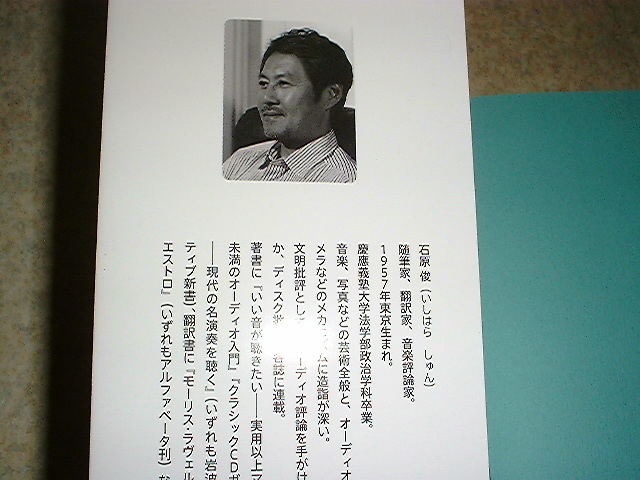 石原 俊（いしはら しゅん）
随筆家、翻訳家、音楽評論家。
1957年東京生まれ。
慶應義塾大学法学部政治学科卒業。
音楽、写真などの芸術全般と、オーディオ
メラなどのメカ ムに造詣が深い。
文明批評とし ーディオ評論を手がけ
か、ディスク 各誌に連載。
著書に『いい音が聴きたい――実用以上マ
未満のオーディオ入門』『クラシックCDガ
――現代の名演奏を聴く』（いずれも岩波
ティブ新書）、翻訳書に『モーリス・ラヴェル
エストロ』（いずれもアルファベータ刊）な